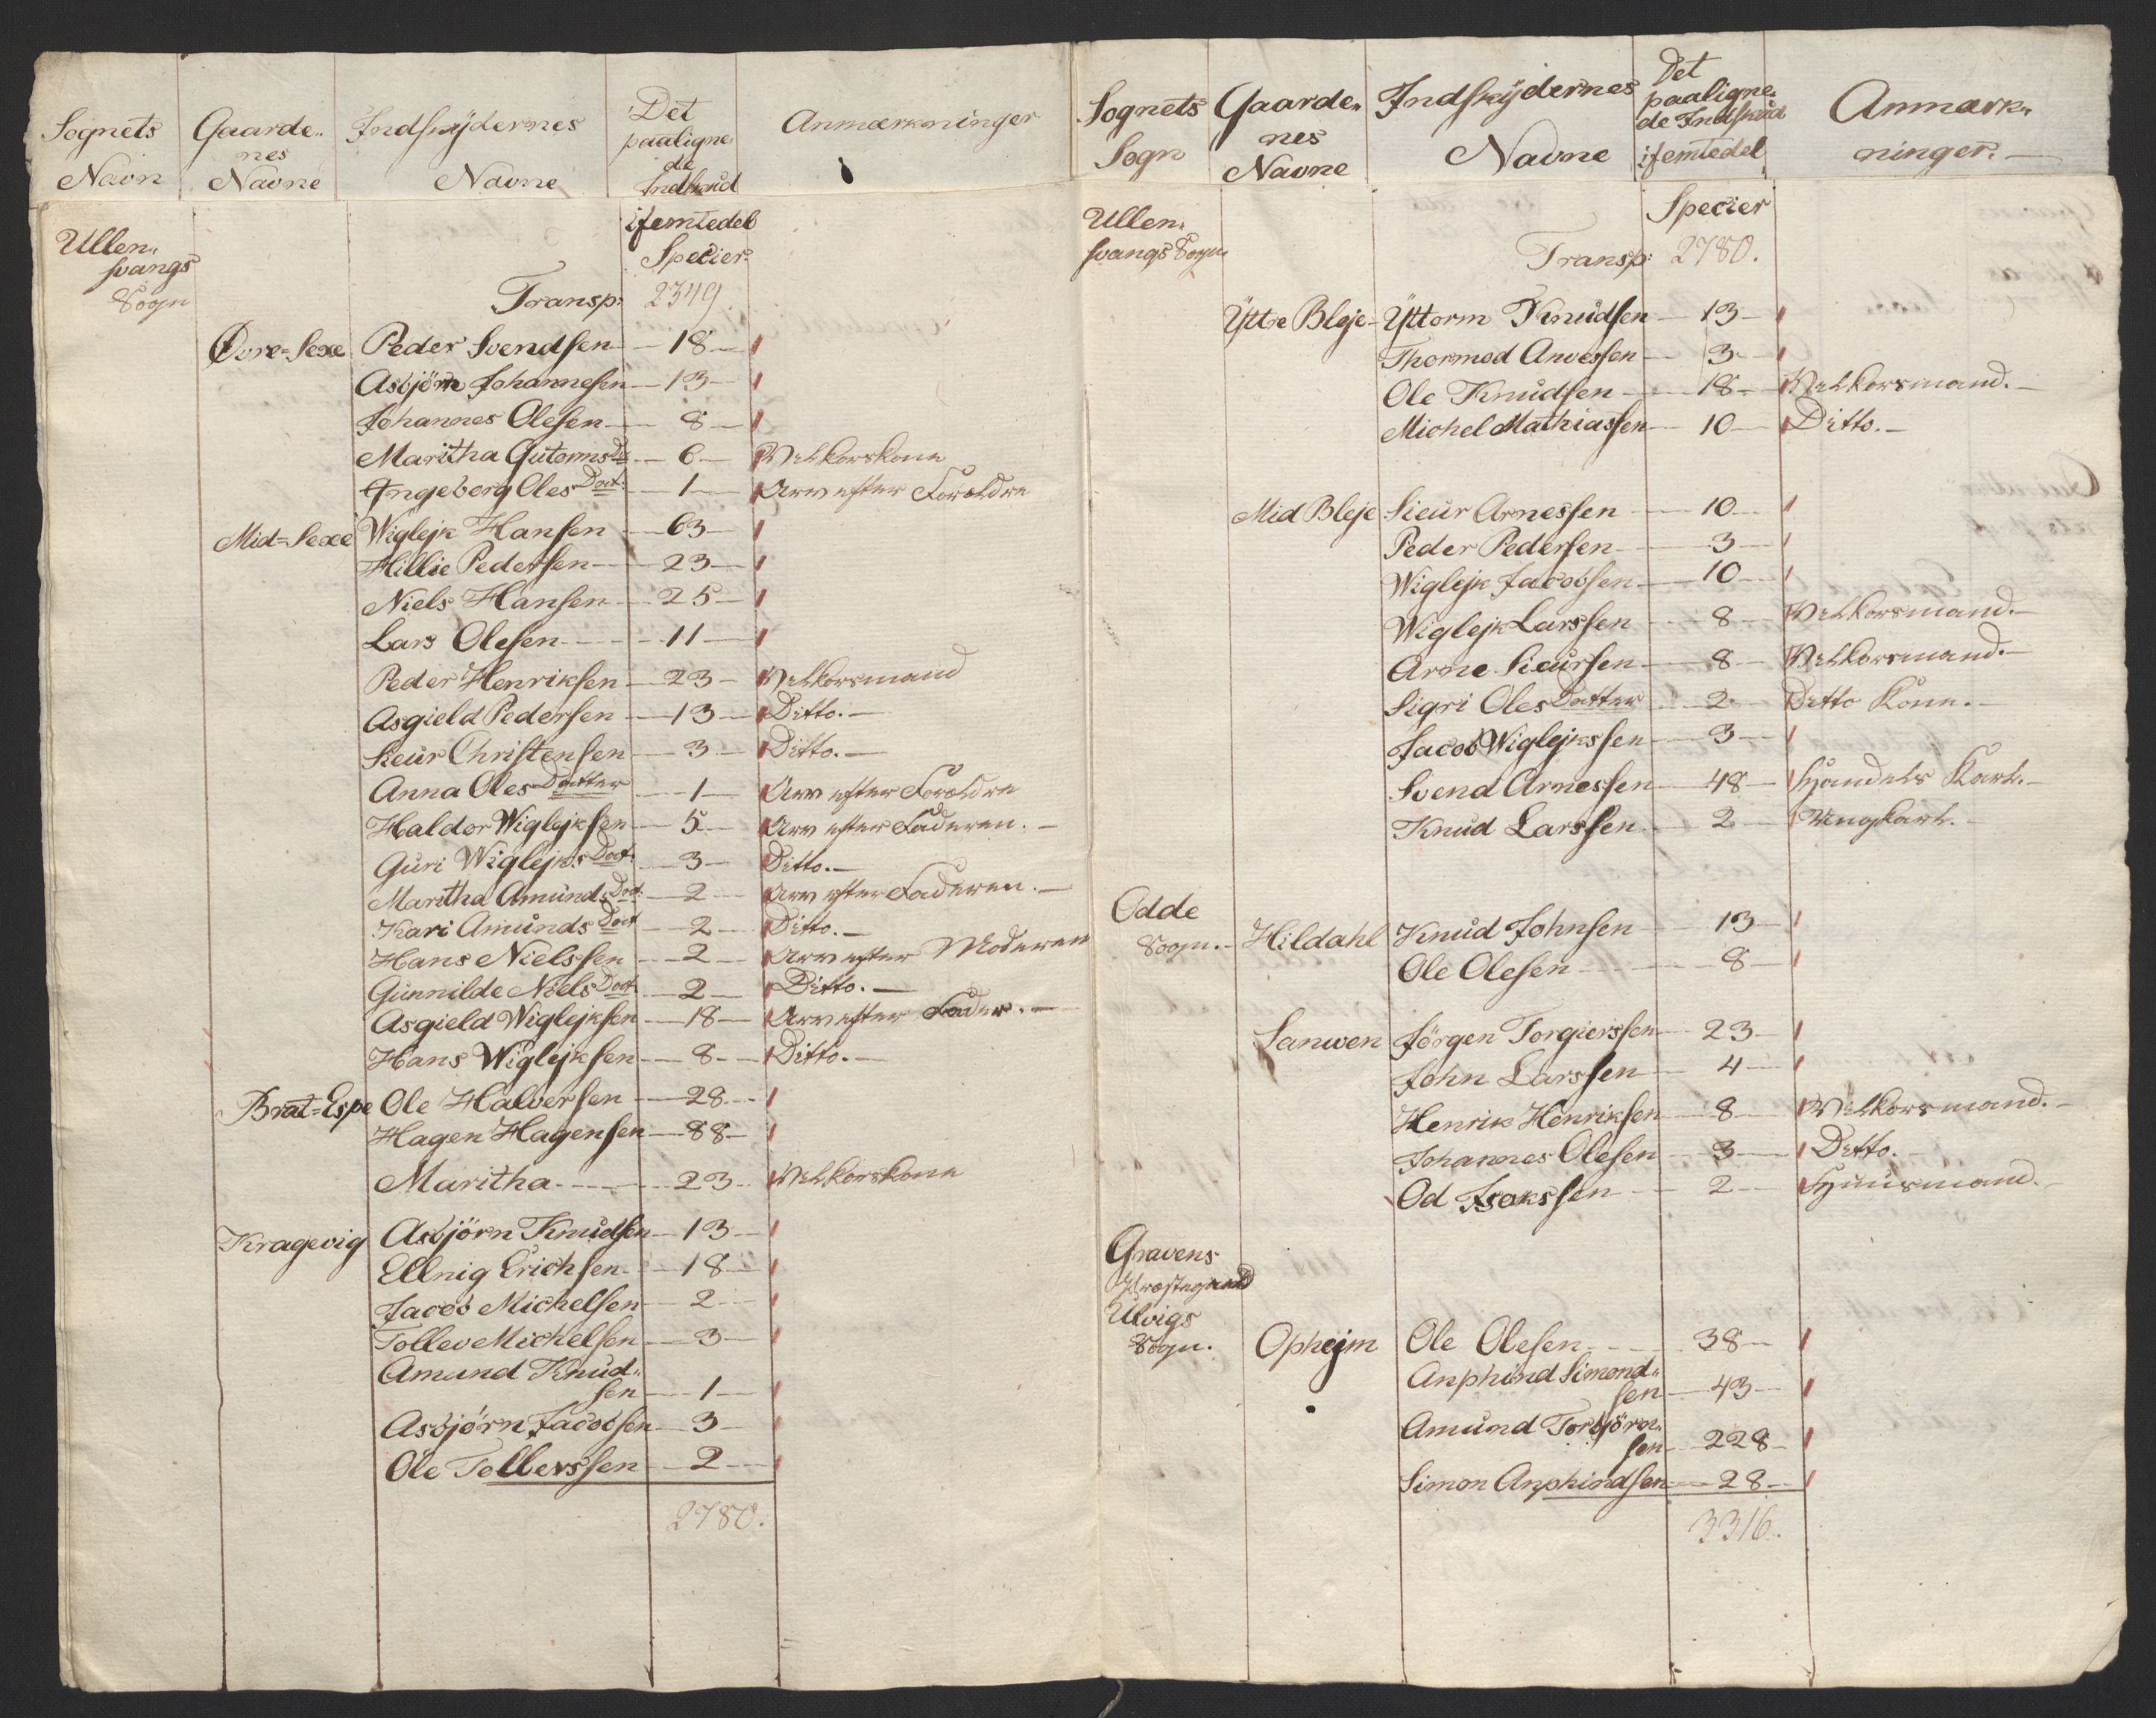 Sognets Navn | Gaarde„nes Navne | Indskÿdernes Navne | Det paaligne„de Indskud i femtedel Specier. | Anmærkninger
Ullen„svangs Sogn
Transp: 2349.
Øvre=Sexe Peder Svendsen — 18 —
Asbjörn Johannesen — 13 —
Johannes Olesen — 8 —
Maritha Gutorms D — 6 — Velkorskone
Ingeborg Oles Dort: — 1 — Arv efter Forældre
Mid=Sexe Wiglejk Hansen — 63 —
Hillie Pedersen — 23 —
Niels Hansen — 25 —
Lars Olesen — 11 —
Peder Henriksen — 23 — Velkorsmand
Asgield Pedersen — 13 — Ditto. —
Sieur Christensen — 3 — Ditto. —
Anna Oles Datter — 1 — Arv efter Forældre
Haldor Wiglejksen — 5 — Arv efter Faderen. —
Guri Wiglejks Dot. — 3 — Ditto. —
Maritha Amunds Dot. — 2 — Arv efter Faderen. —
Kari Amunds Dot — 2 — Ditto. —
Hans Nielssen — 2 — Arv efter Moderen
Gunnilde Niels Dot. — 2 — Ditto. —
Asgield Wiglejksen — 18 — Arv efter Fader. —
Hans Wiglejksen — 8 — Ditto. —
Brat=Espe Ole Halversen — 28 —
Hagen Hagensen — 88 —
Maritha — 23 — Velkorskone
Kragevig Asbjörn Knudsen — 13 —
Ellnig Erichsen — 18 —
Jacob Michelsen — 2 —
Tollev Michelsen — 3 —
Amund Knud„
sen — 1 —
Asbjörn Jacobsen — 3 —
Ole Tollevssen — 2 —
2780.
Sognets Sogn | Gaarde„nes Navne | Indskÿdernes Navne | Det paaligne„de Indskud i femtedel Specier | Anmærk„ninger. —
Ullen„svangs Sogn
Transp: 2780.
Ÿttre Bleje Ÿttorm Knudsen — 13 —
Thormod Anvessen — 3 —
Ole Knudsen — 18 — Velkorsmand. —
Michel Mathiassen — 10 — Ditto. —
Mid Bleje Sieur Arnessen — 10 —
Peder Pedersen — 3 —
Wiglejk Jacobsen — 10 —
Wiglejk Larssen — 8 — Velkorsmand. —
Arne Sieursen — 8 — Velkorsmand. —
Sigri Oles Datter — 2 — Ditto Kone. —
Jacob Wiglejkssen — 3 —
Svend Arnessen — 48 — Handels Karl. —
Knud Larssen — 2 — Ungkarl. —
Odde Sogn. — Hildahl Knud Johnsen — 13 —
Ole Olesen — 8 —
Sanwen Jörgen Torgierssen — 23 —
John Larssen — 4 —
Henrik Henriksen — 8 — Velkorsmand. —
Johannes Olesen — 3 — Ditto. —
Od Isakssen — 2 — Huusmand. —
Gravens
Præstegield
Ulvigs
Sogn. Ophejm Ole Olesen — 38 —
Anphind Simond„
sen — 43 —
Amund Torbjörn„
sen — 228 —
Simon Anphindsen — 28 —
3316.